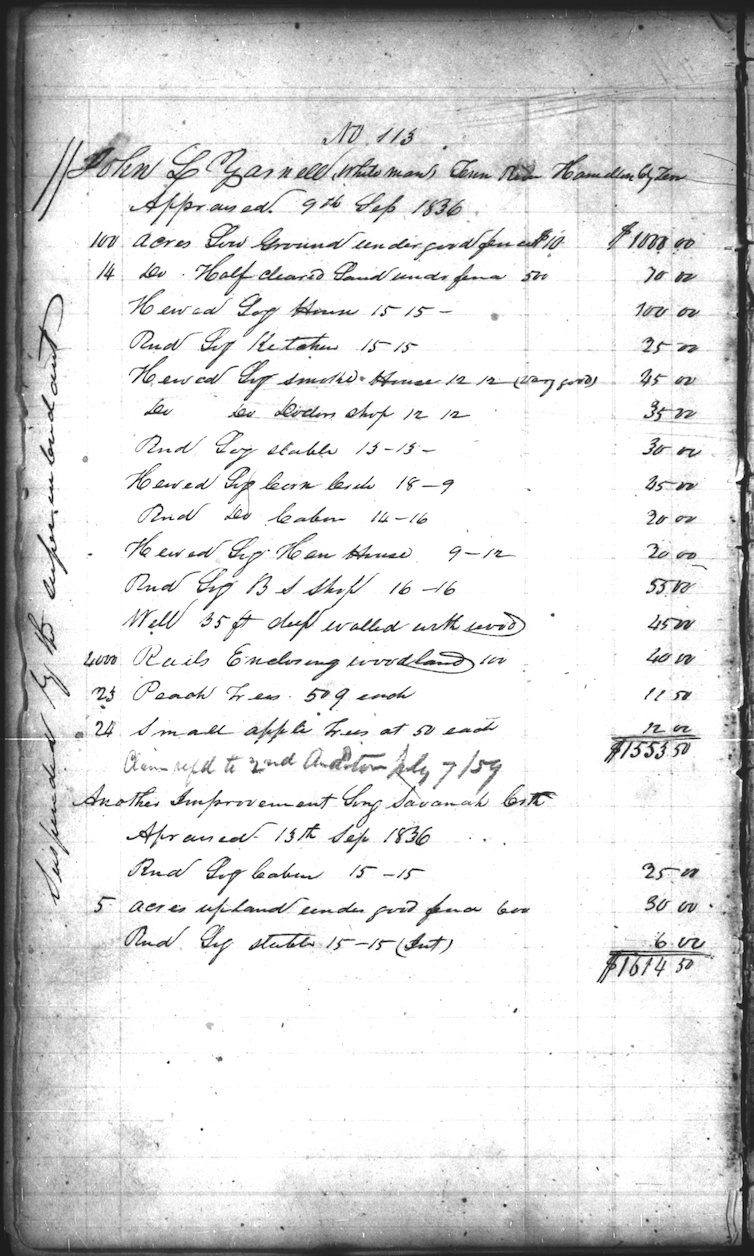 No 113
John L Yarnell, White man's Tenn River Hamelin Cty Ten
Appraised 9th Sep 1836
100 Acres Low Ground under good fence $10 $1000 00
14 Do Half cleared Land under fence 500 70 00
Hewed Log House 15 15 - 100 00
Rnd Log Kitchen 15 15 25 00
Hewed Log Smoke House 12 12 (very good) 45 00
Do Do Doctors Shop 12 12 35 00
Rnd Log stable 13-13- 30 00
Hewed Log Corn Crib 18-9 45 00
Rnd Do Cabin 14-16 20 00
Hewed Log Hen House 9-12 20 00
Rnd Log B S Shop 16-16 55 00
Well 35 ft deep walled with wood 45 00
4000 Rails Enclosing woodland 100 40 00
23 Peach Trees 50 each 11 50
24 Small apple Trees at 50 each 12 00
$1553 50
Claim refd to 2nd Auditor July 7/59
Another Improvement Long Savanah Crk
Apraised 13th Sep 1836
Rnd Log Cabin 15-15 25 00
5 acres upland under good fence 600 30 00
Rnd Log stable 15-15 (Int) 6 00
$1614 50
Suspended by B superintendant